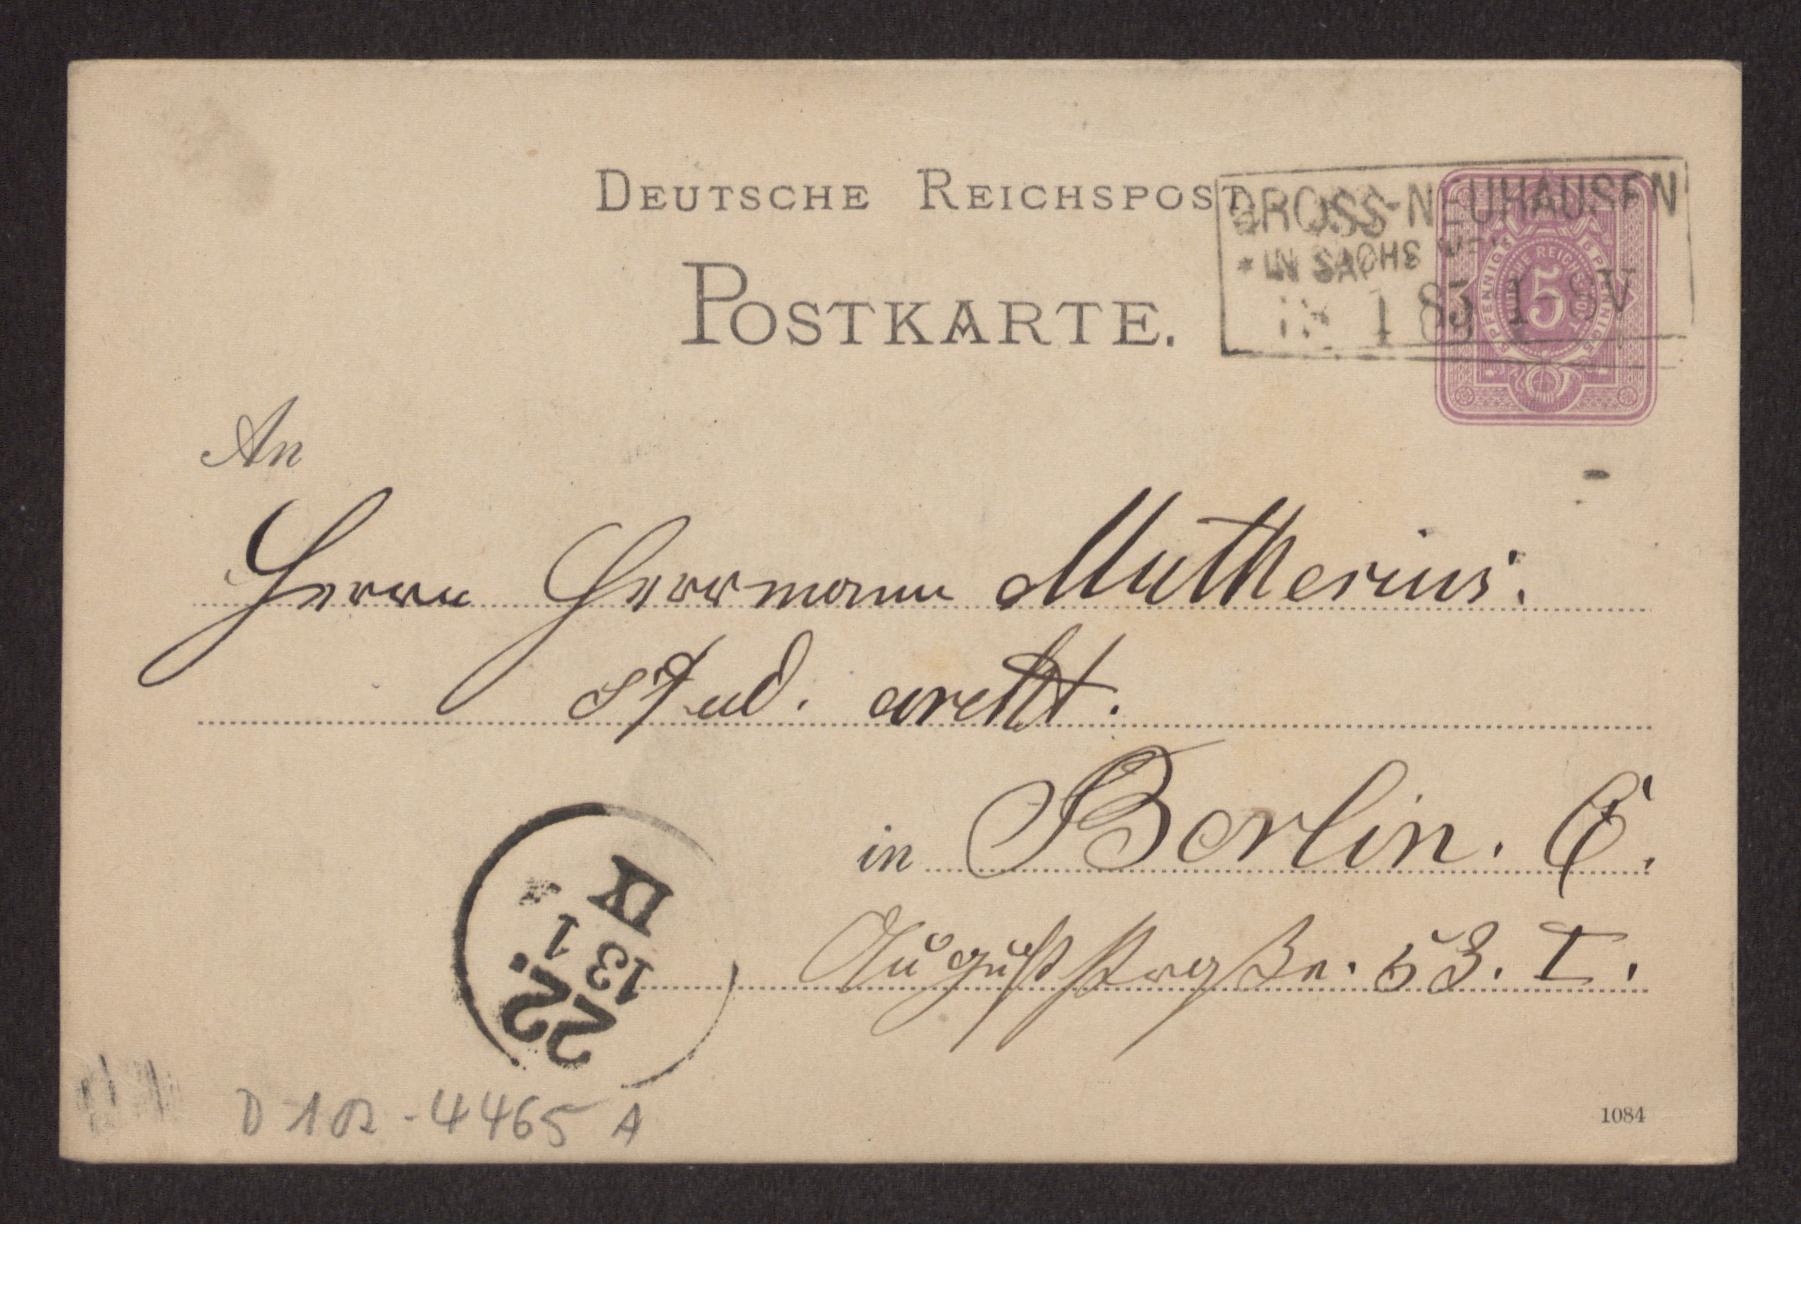 DEUTSCHE REICHSPOST
POSTKARTE.
GROSS-NEUHAUSEN
* IN SACHS
1 83 1 - 8V
5
An
Herrn Herrmann Mutherius.
stud. archt.
in Berlin. C.
Auguststraße. 53. I.
IX
13 1
22.
D 102-4465 A
1084